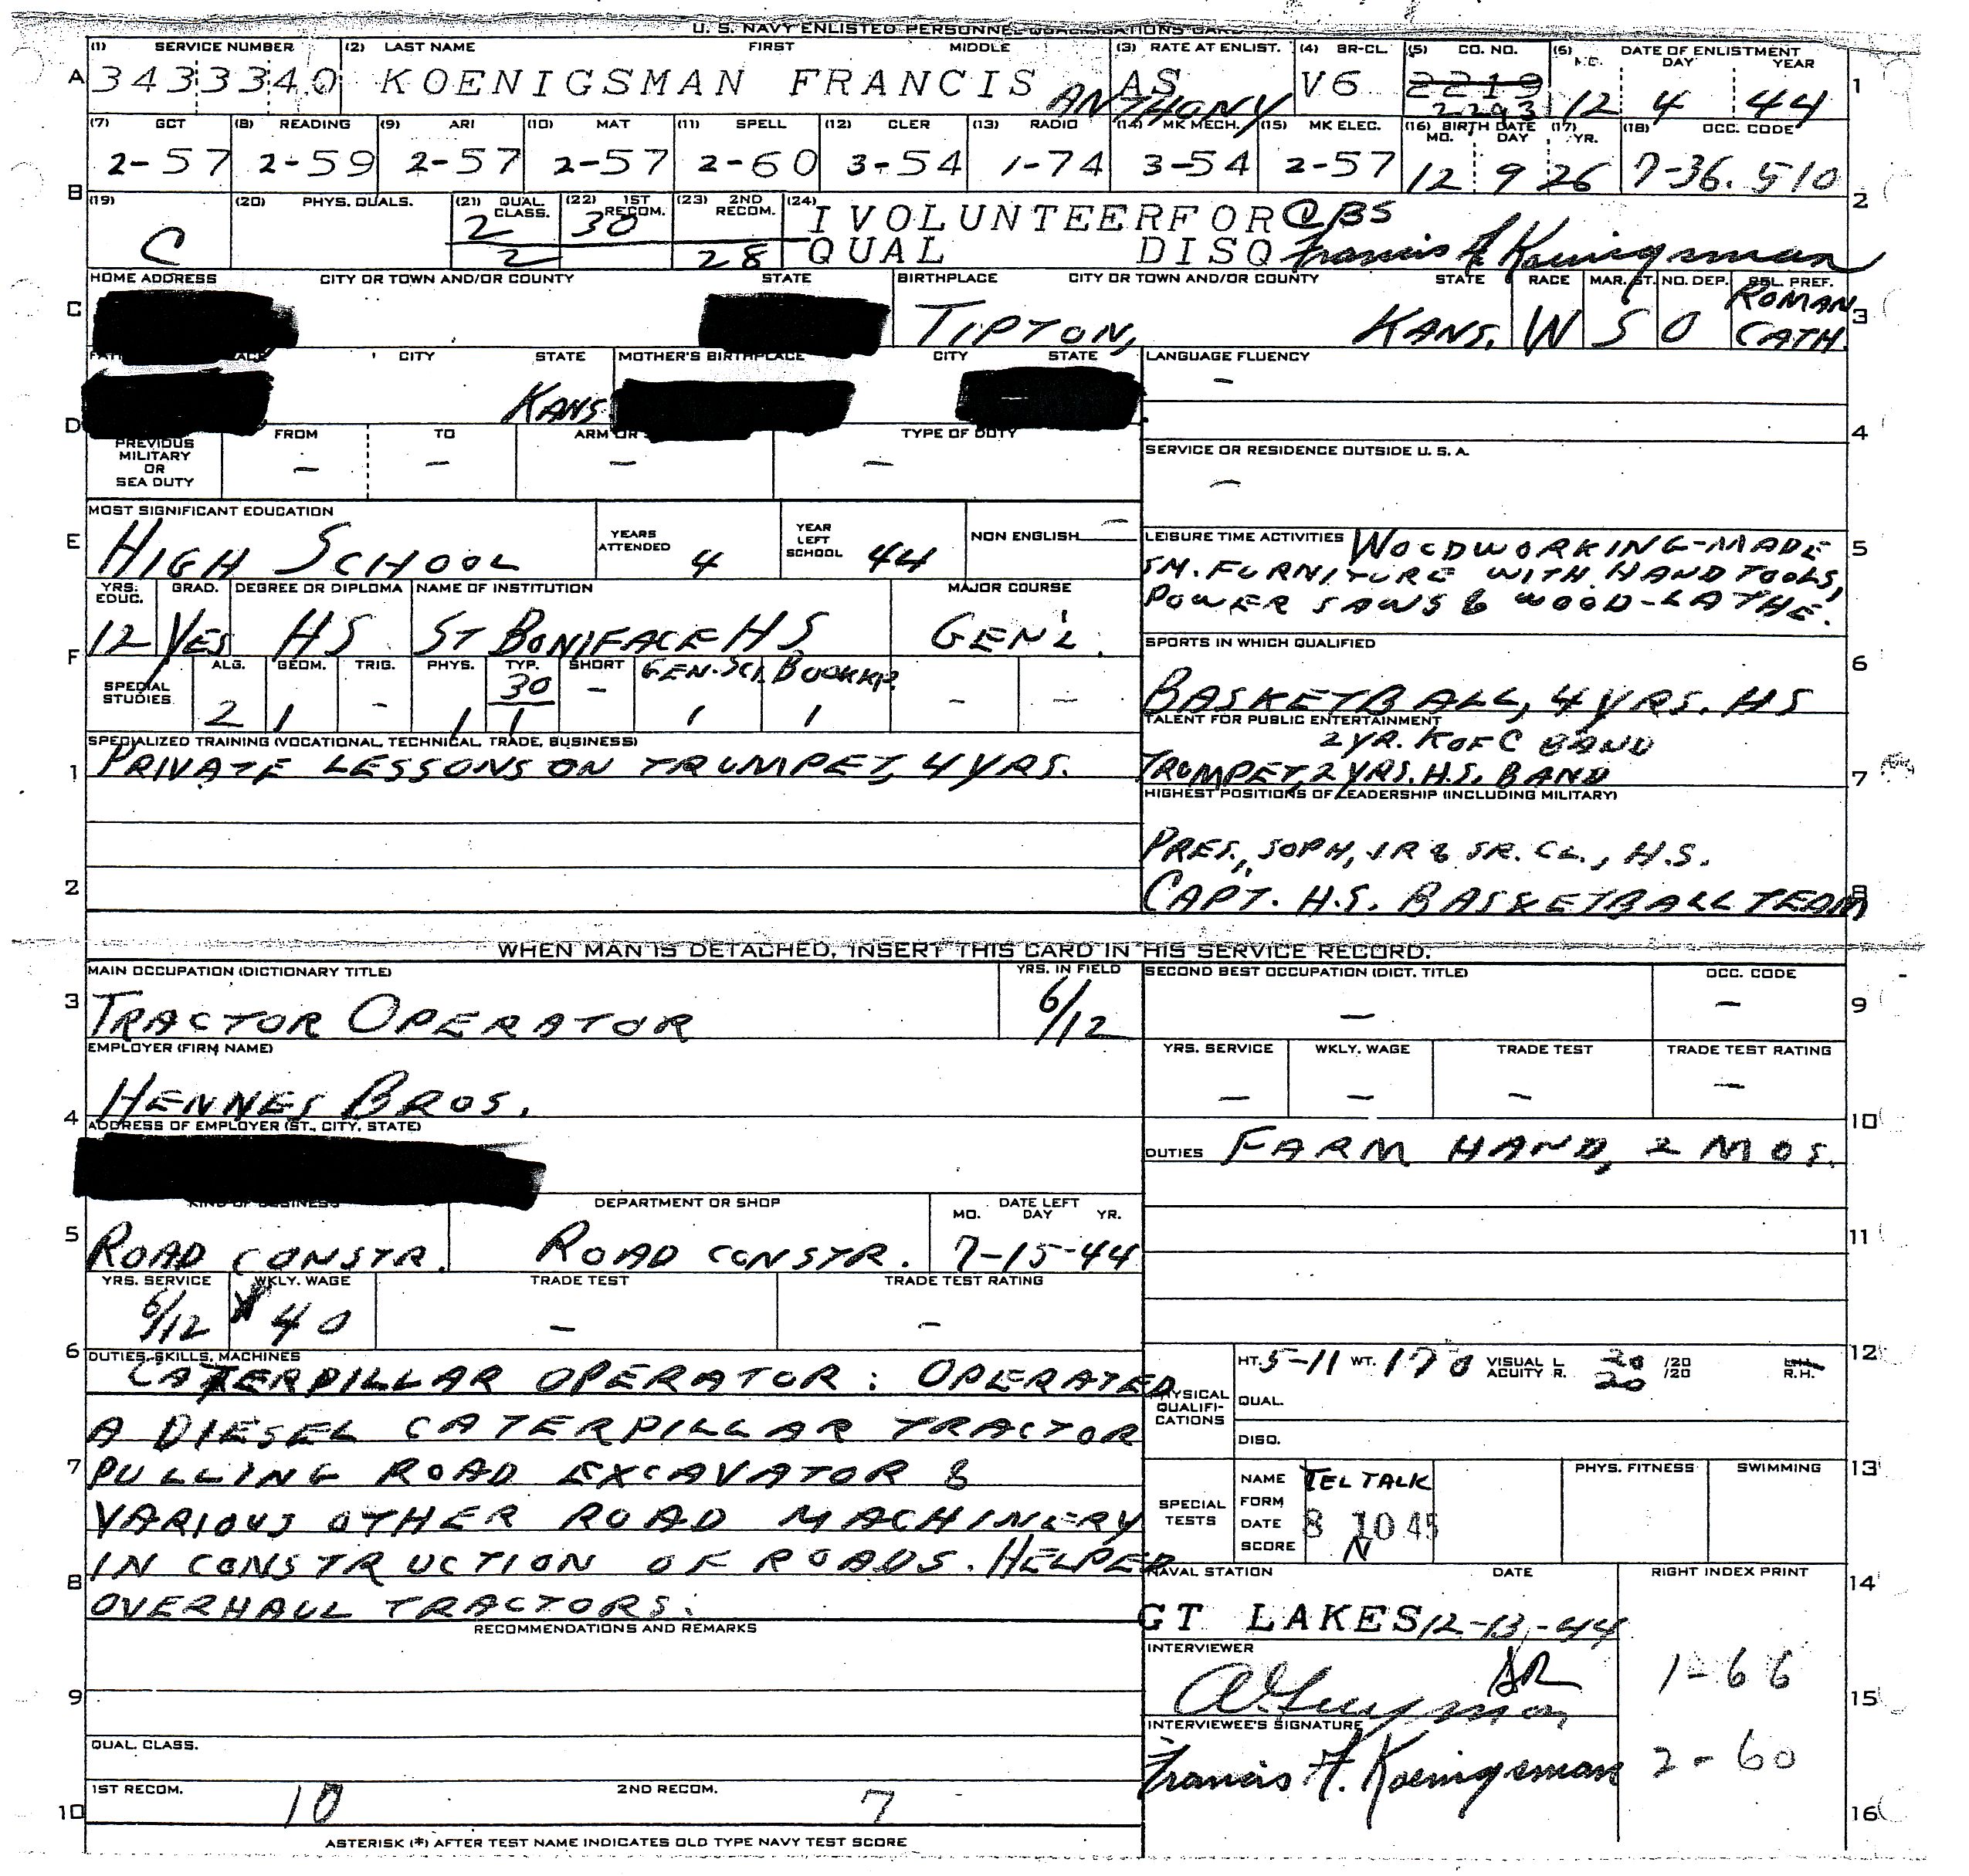 U. S. NAVY ENLISTED PERSONNEL QUALIFICATIONS CARD
(1) SERVICE NUMBER (2) LAST NAME FIRST MIDDLE (3) RATE AT ENLIST. (4) BR-CL. (5) CO. NO. (6) DATE OF ENLISTMENT
MO. DAY YEAR
A 3433340 KOENIGSMAN FRANCIS ANTHONY AS V6 2219 2293 12 4 44 1
(7) GCT (8) READING (9) ARI (10) MAT (11) SPELL (12) CLER (13) RADIO (14) MK MECH. (15) MK ELEC. (16) BIRTH DATE (17) (18) OCC. CODE
MO. DAY YR.
2-57 2-59 2-57 2-57 2-60 3-54 1-74 3-54 2-57 12 9 26 7-36.510
B 2
(19) (20) PHYS. QUALS. (21) QUAL. CLASS. (22) 1ST RECOM. (23) 2ND RECOM. (24) I VOLUNTEER FOR CBS
C 2 30
2 28 QUAL DISQ Francis A Koenigsman
HOME ADDRESS CITY OR TOWN AND/OR COUNTY STATE BIRTHPLACE CITY OR TOWN AND/OR COUNTY STATE RACE MAR. ST. NO. DEP. REL. PREF.
C TIPTON, KANS. W S O ROMAN CATH. 3
CITY STATE MOTHER'S BIRTHPLACE CITY STATE LANGUAGE FLUENCY
KANS. –
D 4
PREVIOUS MILITARY OR SEA DUTY FROM TO ARM OR TYPE OF DUTY
– – – –
SERVICE OR RESIDENCE OUTSIDE U. S. A.
–
MOST SIGNIFICANT EDUCATION YEARS ATTENDED YEAR LEFT SCHOOL NON ENGLISH –
E HIGH SCHOOL 4 44
LEISURE TIME ACTIVITIES WOODWORKING-MADE 5
SM. FURNITURE WITH HAND TOOLS,
POWER SAWS & WOOD-LATHE.
YRS. EDUC. GRAD. DEGREE OR DIPLOMA NAME OF INSTITUTION MAJOR COURSE
12 YES HS ST BONIFACE HS GEN'L.
SPORTS IN WHICH QUALIFIED
F 6
BASKETBALL, 4 YRS. HS
SPECIAL STUDIES ALG. GEOM. TRIG. PHYS. TYP. SHORT GEN. SCI. BOOKKP.
30
2 1 – 1 1 – 1 1 – –
TALENT FOR PUBLIC ENTERTAINMENT
2 YR. K OF C BAND
TRUMPET, 2 YRS. H.S. BAND 7
SPECIALIZED TRAINING (VOCATIONAL, TECHNICAL, TRADE, BUSINESS)
1 PRIVATE LESSONS ON TRUMPET, 4 YRS.
HIGHEST POSITIONS OF LEADERSHIP (INCLUDING MILITARY)
PRES., SOPH, JR & SR. CL., H.S.
2 CAPT. H.S. BASKETBALL TEAM 8
WHEN MAN IS DETACHED, INSERT THIS CARD IN HIS SERVICE RECORD.
MAIN OCCUPATION (DICTIONARY TITLE) YRS. IN FIELD SECOND BEST OCCUPATION (DICT. TITLE) OCC. CODE
3 TRACTOR OPERATOR 6/12 – – 9
EMPLOYER (FIRM NAME) YRS. SERVICE WKLY. WAGE TRADE TEST TRADE TEST RATING
HENNES BROS. – – – –
4 10
ADDRESS OF EMPLOYER (ST., CITY, STATE)
DUTIES FARM HAND, 2 MOS.
KIND OF BUSINESS DEPARTMENT OR SHOP DATE LEFT
MO. DAY YR.
5 ROAD CONSTR. ROAD CONSTR. 7-15-44 11
YRS. SERVICE WKLY. WAGE TRADE TEST TRADE TEST RATING
6/12 40 – –
6 12
DUTIES, SKILLS, MACHINES
CATERPILLAR OPERATOR: OPERATED
A DIESEL CATERPILLAR TRACTOR
7 PULLING ROAD EXCAVATOR &
VARIOUS OTHER ROAD MACHINERY
IN CONSTRUCTION OF ROADS. HELPED
8 OVERHAUL TRACTORS.
PHYSICAL QUALIFICATIONS HT. 5-11 WT. 170 VISUAL ACUITY L. 20 /20 R. 20 /20 L.H. R.H.
QUAL.
DISQ.
13
SPECIAL TESTS NAME TEL TALK PHYS. FITNESS SWIMMING
FORM
DATE 8 10 45
SCORE N
NAVAL STATION DATE RIGHT INDEX PRINT
14
GT LAKES 12-13-44
RECOMMENDATIONS AND REMARKS
INTERVIEWER
1-66
9 15
INTERVIEWEE'S SIGNATURE
Francis A. Koenigsman 2-60
QUAL. CLASS.
1ST RECOM. 10 2ND RECOM. 7
10 16
ASTERISK (*) AFTER TEST NAME INDICATES OLD TYPE NAVY TEST SCORE